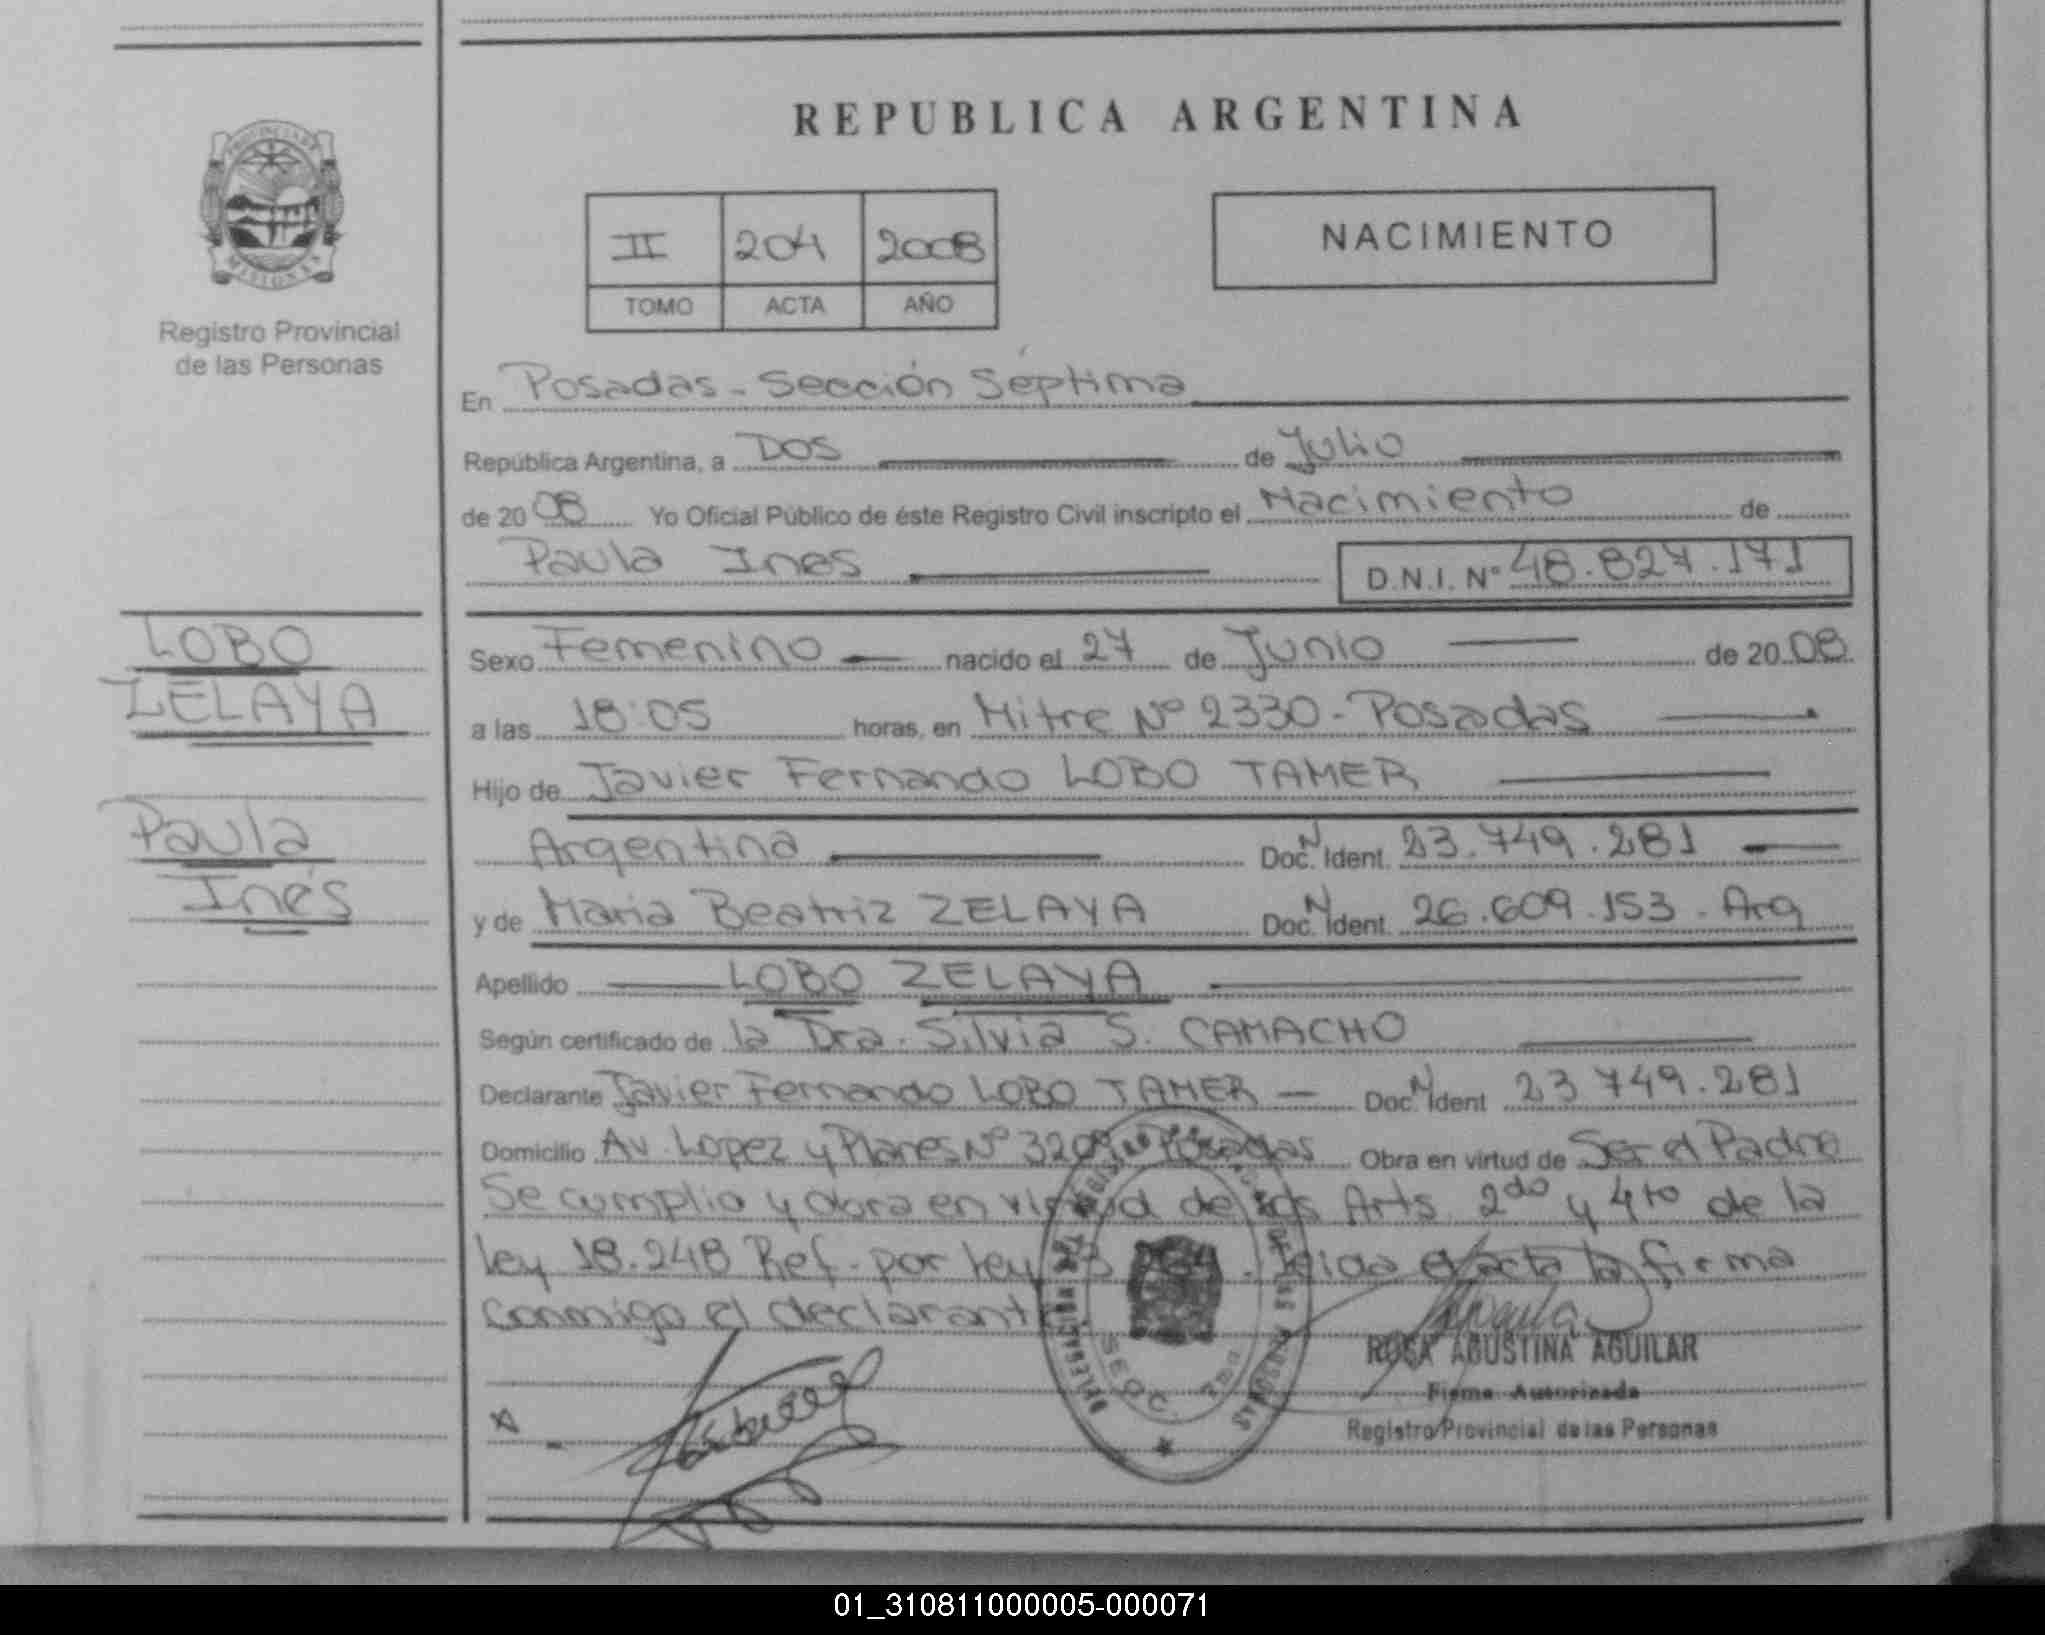 REPUBLICA ARGENTINA
PROVINCIA DE
MISIONES
Registro Provincial
de las Personas
II 204 2008
TOMO ACTA AÑO
NACIMIENTO
En Posadas - Sección Séptima
República Argentina, a Dos de Julio
de 20 08 Yo Oficial Público de éste Registro Civil inscripto el Nacimiento de
Paula Ines D.N.I. N° 48.827.171
LOBO
ZELAYA
Paula
Inés
Sexo Femenino nacido el 27 de Junio de 20 08
a las 18:05 horas, en Mitre Nº 2330 - Posadas
Hijo de Javier Fernando LOBO TAMER
Argentina Doc. N Ident. 23.749.281
y de Maria Beatriz ZELAYA Doc. N Ident. 26.609.153 - Arg
Apellido LOBO ZELAYA
Según certificado de la Dra. Silvia S. CAMACHO
Declarante Javier Fernando LOBO TAMER Doc. N Ident 23 749.281
Domicilio Av. Lopez y Planes Nº Posadas Obra en virtud de Ser el Padre
Se cumplio y obra en virtud de los Arts. 2do y 4to de la
ley 18.248 Ref. por ley leida el acta la firma
conmigo el declarante
ROSA AGUSTINA AGUILAR
Firma Autorizada
Registro Provincial de las Personas
DELEGACIÓN
SECC. 7ma
01_310811000005-000071